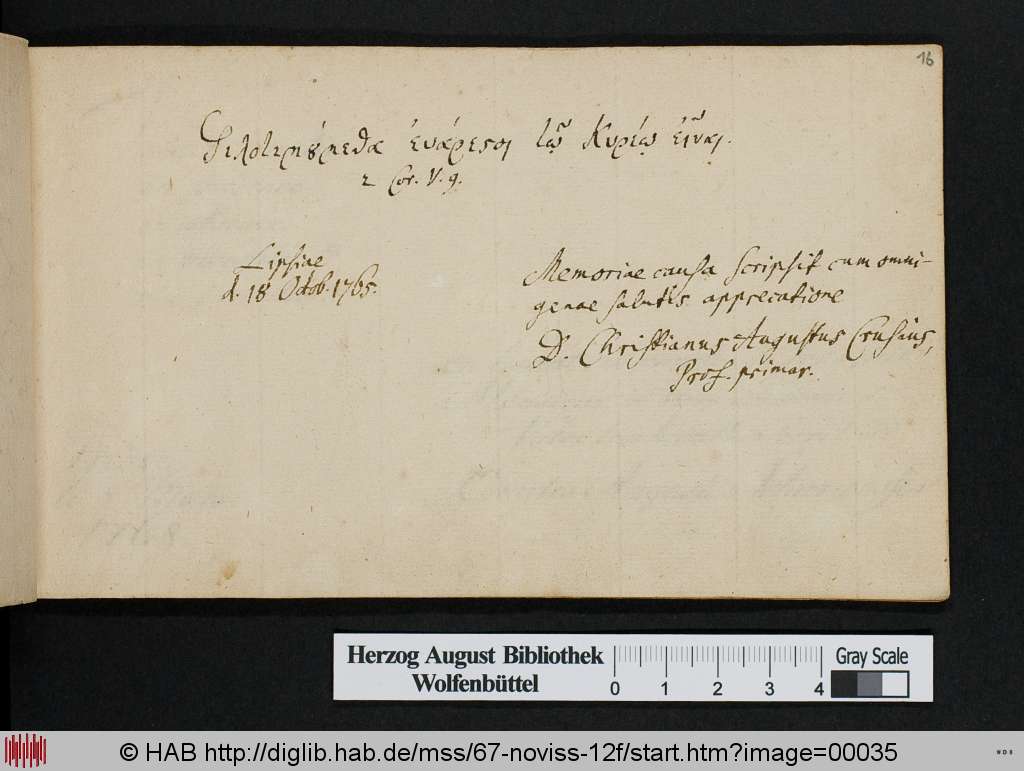 16
Φιλοτιμȣ́μεθα ἐυάρεϛοι τῷ Κυρίῳ εἶναι.
2 Cor. V. 9.
Lipsiae
d. 18 Octob. 1765.
Memoriae causa scripsit cum omni-
genae salutis apprecatione
D. Christianus Augustus Crusius,
Prof. primar.
Herzog August Bibliothek
Wolfenbüttel
0 1 2 3 4
Gray Scale
© HAB http://diglib.hab.de/mss/67-noviss-12f/start.htm?image=00035
WDB